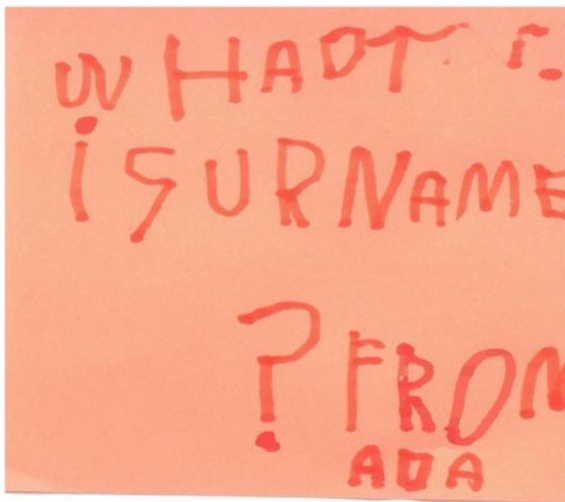 WHADT
iSURNAME
? FROM
ADA